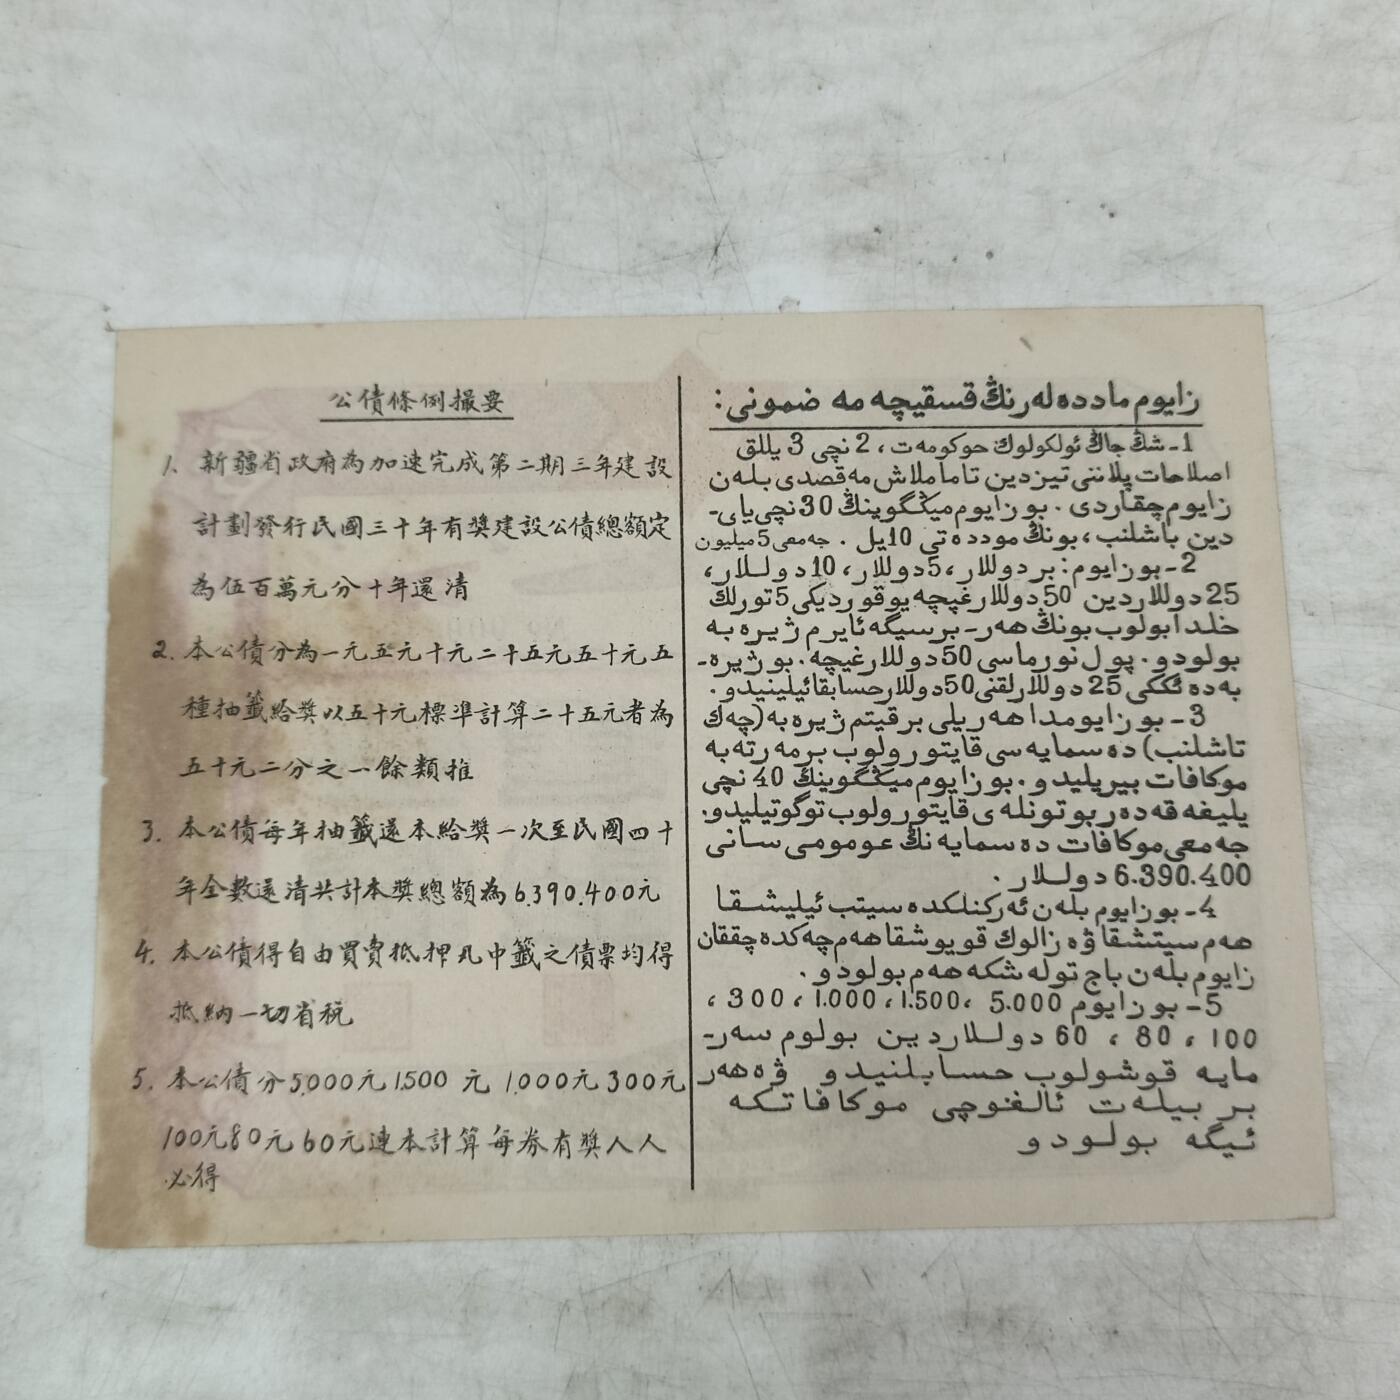 公債條例撮要
1. 新疆省政府為加速完成第二期三年建設
計劃發行民國三十年有獎建設公債總額定
為伍百萬元分十年還清
2. 本公債分為一元五元十元二十五元五十元五
種抽籤給獎以五十元標準計算二十五元者為
五十元二分之一餘類推
3. 本公債每年抽籤還本給獎一次至民國四十
年全數還清共計本獎總額為6.390.400元
4. 本公債得自由買賣抵押凡中籤之債票均得
抵納一切省稅
5. 本公債分5.000元1.500元 1.000元300元
100元80元60元連本計算每券有獎人人
必得
زايوم ماددەلەرنىڭ قسقيچە مەضمونى:
1- شڭ جاڭ ئولكولوك حوكومەت، 2 نچى 3 يللق
اصلاحات پلاننى تيزدين تاماملاش مەقصدى بلەن
زايوم چقاردى. بو زايوم ميڭگوينىڭ 30 نچى ياى-
دين باشلنب، بونڭ موددەتى 10 يل. جەمعى 5 ميليون
2- بو زايوم: بر دوللار، 5 دوللار، 10 دوللار،
25 دوللاردين 50 دوللارغيچە يوقورديكى 5 تورلڭ
خلدا بولوب بونڭ هەر-برسيگە ئايرم ژيرە بە
بولودو. پول نورماسى 50 دوللارغيچە. بو ژيرە-
بەدە ئككى 25 دوللارلقنى 50 دوللار حسابقا ئيلينيدو.
3- بو زايومدا هەر يلى بر قيتم ژيرە بە (چەك
تاشلنب) دەسمايەسى قايتورولوب بر مەرتە بە
موكافات بيريليدو. بو زايوم ميڭگوينىڭ 40 نچى
يليغە قەدەر بوتونلەى قايتورولوب توگوتيليدو.
جەمعى موكافات دەسمايەنڭ عومومى سانى
6.390.400 دوللار.
4- بو زايوم بلەن ئەركنلكدە سيتب ئيليشقا
هەم سيتشقا ۋە زالوك قويوشقا هەم چەكدە چققان
زايوم بلەن باج تولەشكە هەم بولودو.
5- بو زايوم 5.000 ،1.500 ،1.000 ،300 ،
100 ، 80 ، 60 دوللاردين بولوم سەر-
مايە قوشولوب حسابلنيدو ۋە هەر
بر بيلەت ئالغوچى موكافاتكە
ئيگە بولودو